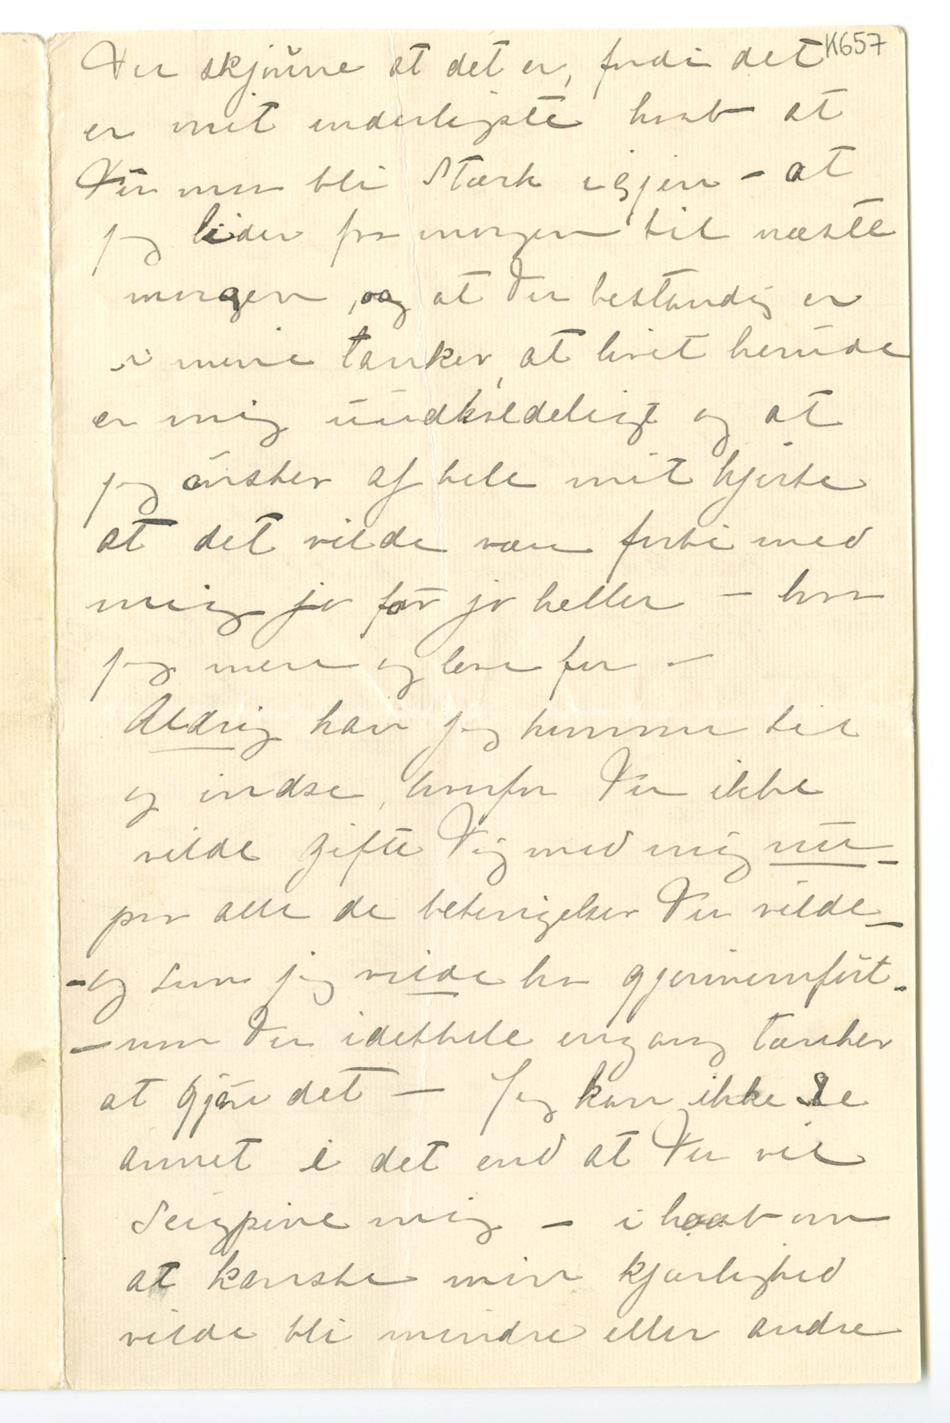 K657
Du skjønne at det er, fordi det
er mit inderligste haab at
Du maa bli Stærk igjen – at
jeg lider fra morgen til næste
morgen, og at Du bestandig er
i mine tanker, at livet herude
er mig uudholdeligt og at
jeg ønsker af hele mit hjerte
at det vilde være forbi med
mig jo før jo heller – hva
jeg mere og leve for –
Aldrig har jeg kunnet til
og indse, hvorfor Du ikke
vilde gifte Dig med mig nu –
paa alle de betingelser Du vilde –
– og som jeg vilde ha gjennemført –
– naar Du idethele engang tænker
at gjøre det – Jeg kan ikke se
annet i det end at Du vil
Seigpine mig – i haab om
at kanske min kjærlighed
vilde bli mindre eller andre